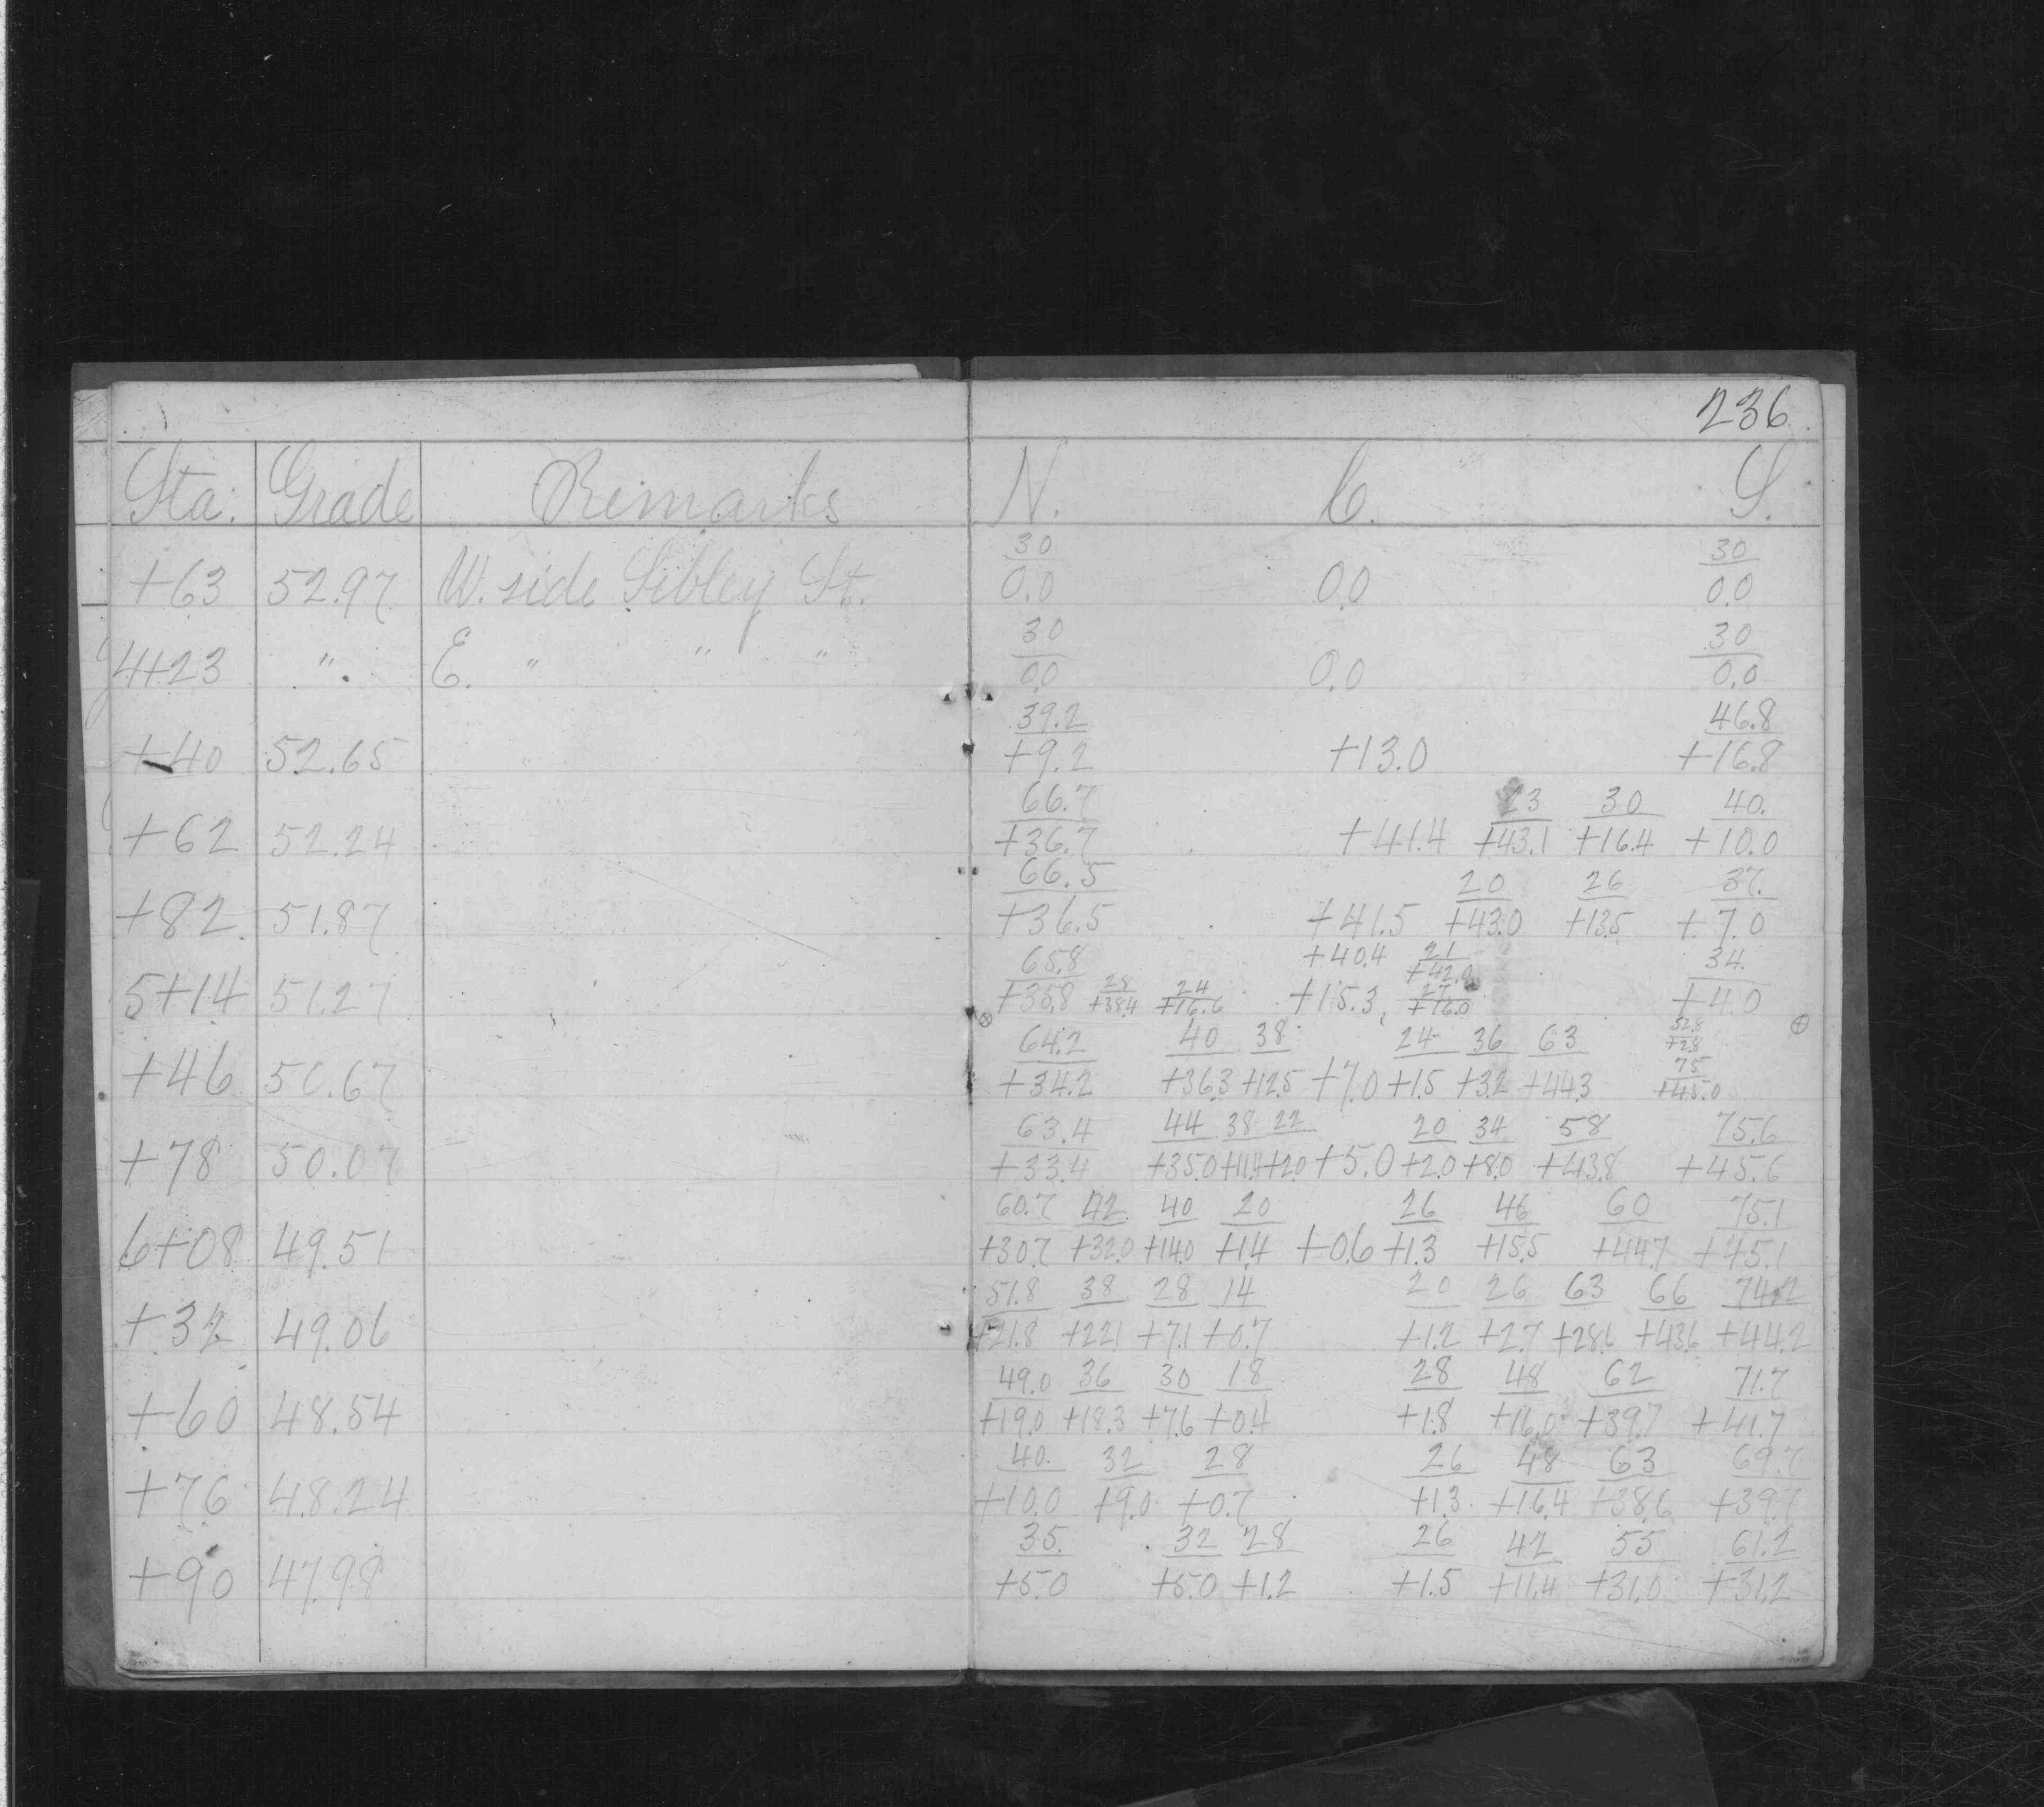 236
Sta. Grade Remarks N. C. S.
30 30
+63 52.97 W. side Sibley St. 0.0 0.0 0.0
30 30
4+23 " E. " " " 0.0 0.0 0.0
39.2 46.8
+40 52.65 +9.2 +13.0 +16.8
66.7 23 30 40.
+62 52.24 +36.7 +41.4 +43.1 +16.4 +10.0
66.5 20 26 37.
+82 51.87 +36.5 +41.5 +43.0 +13.5 +7.0
65.8 28 24 +40.4 21 +42.0 34.
5+14 51.27 +35.8 +38.4 +16.6 +15.3 27 +16.0 +4.0
64.2 40 38 24 36 63 32.8 +2.8 75
+46 50.67 +34.2 +36.3 +12.5 +7.0 +1.5 +3.2 +44.3 +45.0
63.4 44 38 22 20 34 58 75.6
+78 50.07 +33.4 +35.0 +11.4 +2.0 +5.0 +2.0 +8.0 +43.8 +45.6
60.7 42 40 20 26 46 60 75.1
6+08 49.51 +30.7 +32.0 +14.0 +1.4 +0.6 +1.3 +15.5 +44.7 +45.1
51.8 38 28 14 20 26 63 66 74.2
+32 49.06 +21.8 +22.1 +7.1 +0.7 +1.2 +2.7 +28.6 +43.6 +44.2
49.0 36 30 18 28 48 62 71.7
+60 48.54 +19.0 +18.3 +7.6 +0.4 +1.8 +16.0 +39.7 +41.7
40. 32 28 26 48 63 69.7
+76 48.24 +10.0 +9.0 +0.7 +1.3 +16.4 +38.6 +39.7
35. 32 28 26 42 55 61.2
+90 47.98 +5.0 +5.0 +1.2 +1.5 +11.4 +31.0 +31.2